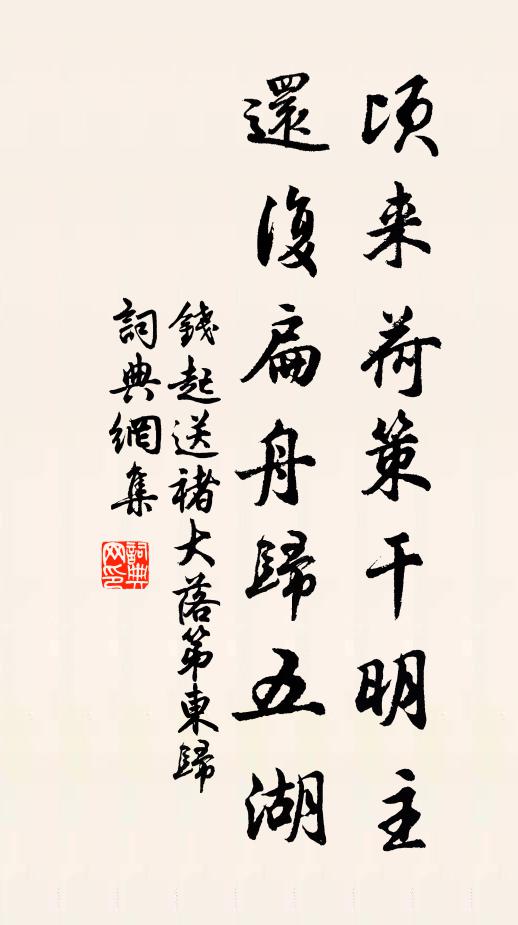 頃来荷策干明主
還復扁舟歸五湖
錢起送褚大落第東歸
詞典網集
詞典
网印